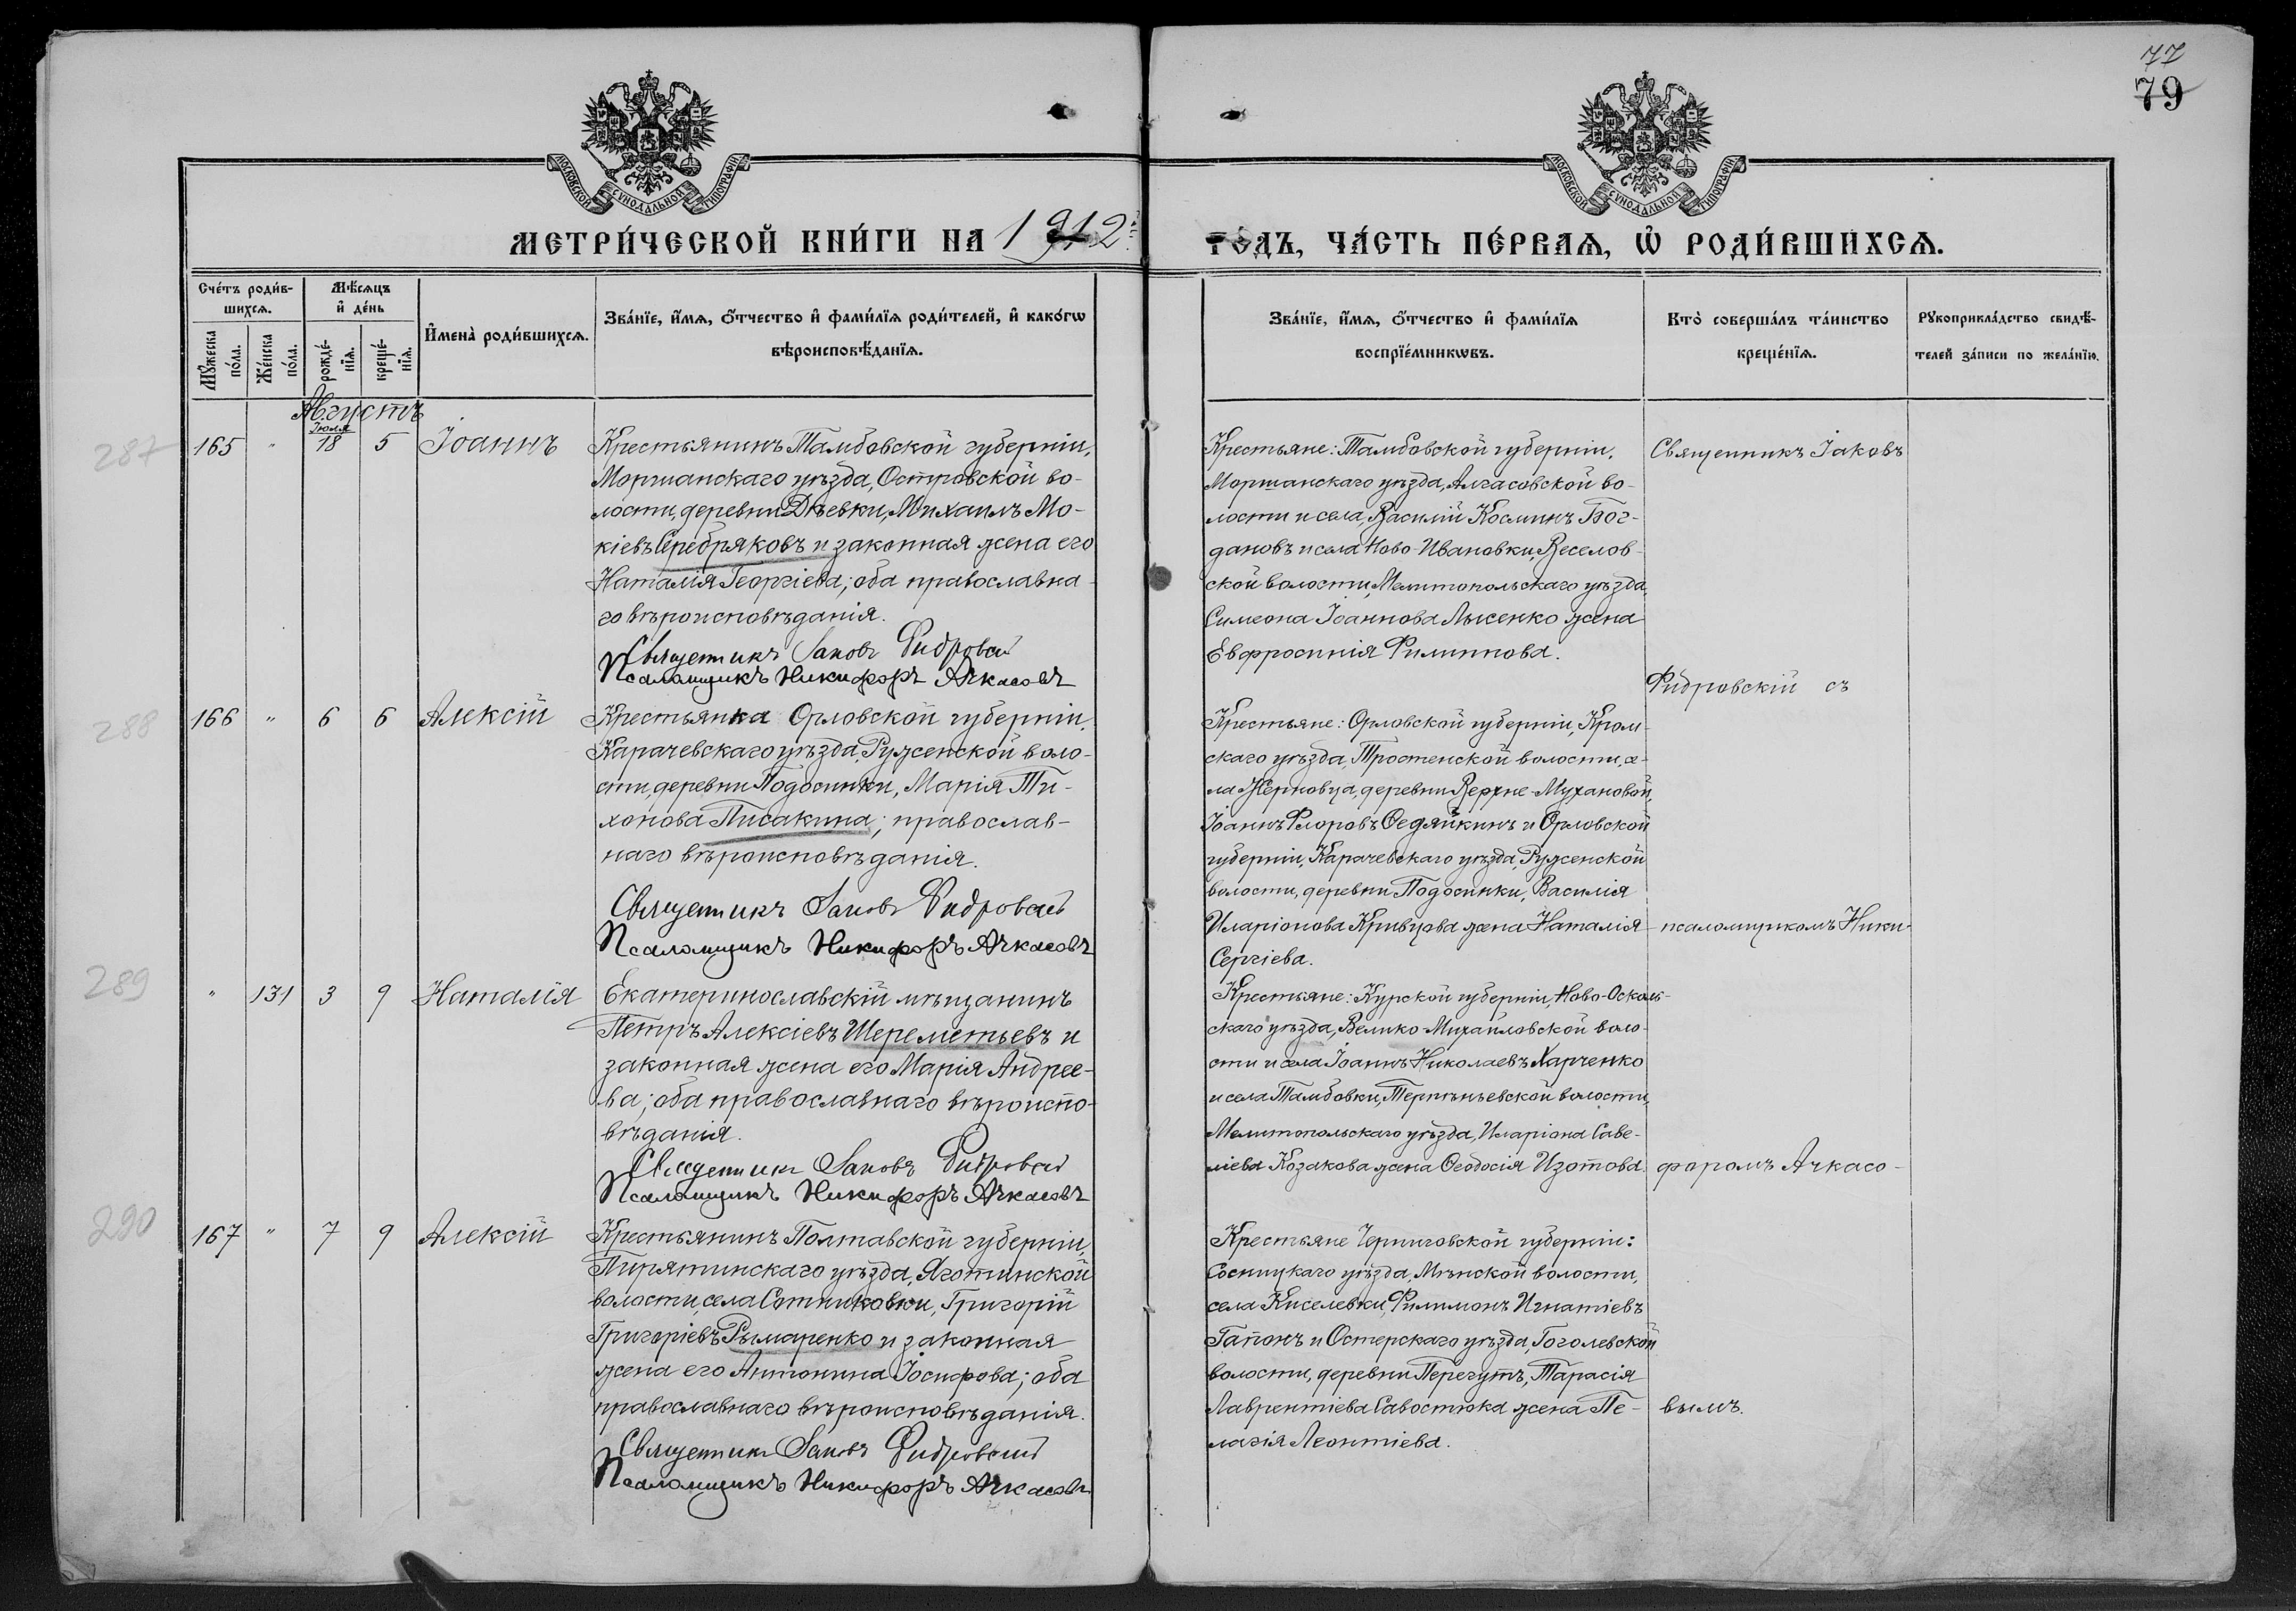 77
79
МОСКОВСКОЙ СѴНОДАЛЬНОЙ ТИПОГРАФІИ
МОСКОВСКОЙ СѴНОДАЛЬНОЙ ТИПОГРАФІИ
МЕТРИ́ЧЕСКОЙ КНИ́ГИ НА 1912й ГО́ДЪ, ЧА́СТЬ ПЕ́РВАѦ, Ѡ҆ РОДИ́ВШИХСѦ.
Сче́тъ роди́в-
шихсѧ.
Мꙋ́жеска по́ла.
Же́нска по́ла.
Мѣ́сѧцъ
и҆ де́нь
рожде́-
нїѧ.
креще́-
нїѧ.
И҆мена̀ роди́вшихсѧ.
Зва́нїе, и҆́мѧ, ѻ҆́тчество и҆ фами́лїѧ роди́телей, и҆ како́гѡ
вѣроисповѣ́данїѧ.
Зва́нїе, и҆́мѧ, ѻ҆́тчество и҆ фами́лїѧ
воспрїе́мникѡвъ.
Кто̀ соверша́лъ та́инство
креще́нїѧ.
Рꙋкоприкла́дство свидѣ́-
телей за́писи по жела́нїю.
Августъ
287
165 " Іюля 18 5 Іоаннъ
Крестьянинъ Тамбовской губерніи,
Моршанскаго уѣзда, Островской во-
лости, деревни Дѣевки, Михаилъ Мо-
кіевъ Серебряковъ и законная жена его
Наталія Георгіева; оба православна-
го вѣроисповѣданія.
Священникъ Іаковъ Фидровскій
Псаломщикъ Никифоръ Ачкасовъ
Крестьяне: Тамбовской губерніи,
Моршанскаго уѣзда, Алгасовской во-
лости и села, Василій Косминъ Бог-
дановъ и села Ново-Ивановки, Веселов-
ской волости, Мелитопольскаго уѣзда,
Симеона Іоаннова Лысенко жена
Евфросинія Филиппова.
Священникъ Іаковъ
Фидровскій съ
288
166 " 6 6 Алексій
Крестьянка Орловской губерніи,
Карачевскаго уѣзда, Руженской воло-
сти, деревни Подосинки, Марія Ти-
хонова Писакина; православ-
наго вѣроисповѣданія.
Священникъ Іаковъ Фидровскій
Псаломщикъ Никифоръ Ачкасовъ
Крестьяне: Орловской губерніи, Кром-
скаго уѣзда, Тростенской волости, се-
ла Жерновца, деревни Верхне-Мухановой,
Іоаннъ Флоровъ Ѳедяйкинъ и Орловской
губерніи, Карачевскаго уѣзда, Руженской
волости, деревни Подосинки, Василія
Иларіонова Кривцова жена Наталія
Сергіева.
псаломщикомъ Ники-
289
" 131 3 9 Наталія
Екатеринославскій мѣщанинъ
Петръ Алексіевъ Шереметьевъ и
законная жена его Марія Андрее-
ва; оба православнаго вѣроиспо-
вѣданія.
Священникъ Іаковъ Фидровскій
Псаломщикъ Никифоръ Ачкасовъ
Крестьяне: Курской губерніи, Ново-Осколь-
скаго уѣзда, Велико-Михайловской воло-
сти и села Іоаннъ Николаевъ Харченко
и села Тамбовки, Терпѣньевской волости,
Мелитопольскаго уѣзда, Иларіона Саве-
ліева Козакова жена Ѳеодосія Изотова.
форомъ Ачкасо-
290
167 " 7 9 Алексій
Крестьянинъ Полтавской губерніи,
Пирятинскаго уѣзда, Яготинской
волости, села Сотниковки, Григорій
Григоріевъ Рымаренко и законная
жена его Антонина Іосифова; оба
православнаго вѣроисповѣданія.
Священникъ Іаковъ Фидровскій
Псаломщикъ Никифоръ Ачкасовъ
Крестьяне Черниговской губерніи:
Сосницкаго уѣзда, Мѣнской волости,
села Киселевки, Филимонъ Игнатіевъ
Гапонъ и Остерскаго уѣзда, Гоголевской
волости, деревни Перегутъ, Тарасія
Лаврентіева Савостюка жена Пе-
лагія Леонтіева.
вымъ.